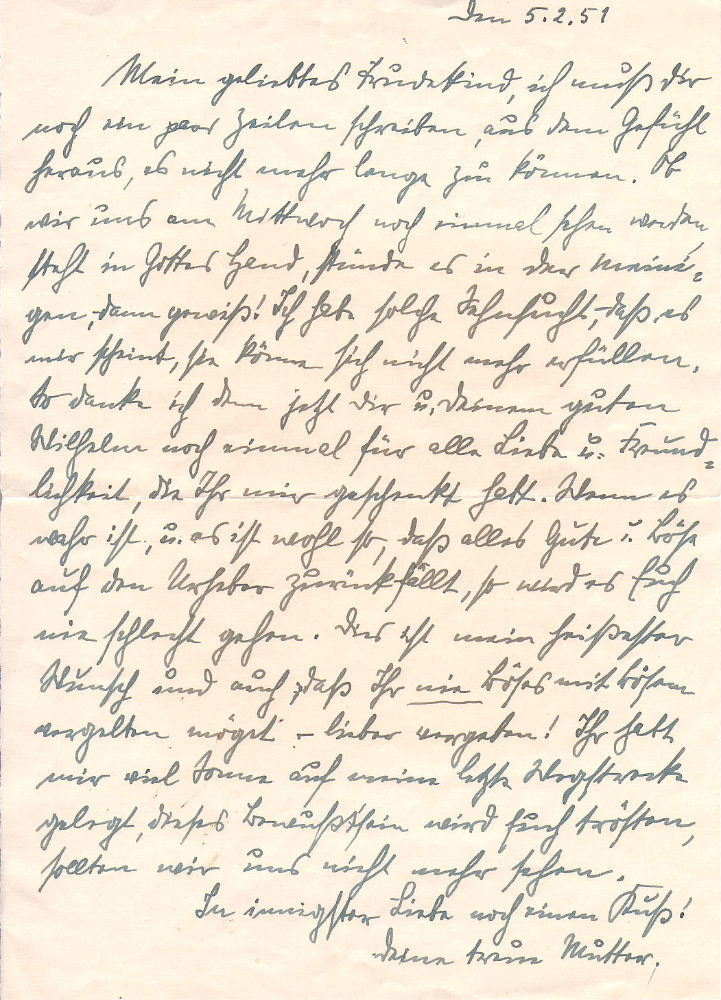 Den 5.2.51
Mein geliebtes Trudekind, ich muß Dir
noch ein paar Zeilen schreiben, aus dem Gefühl
heraus, es nicht mehr lange zu können. Ob
wir uns am Mittwoch noch einmal sehen werden,
steht in Gottes Hand, stünde es in der meini-
gen, dann gewiß! Ich habe solche Sehnsucht, daß es
mir scheint, sie könne sich nicht mehr erfüllen.
So danke ich denn jetzt Dir u. Deinem guten
Wilhelm noch einmal für alle Liebe u. Freund-
lichkeit, die Ihr mir geschenkt habt. Wenn es
wahr ist, u. es ist wohl so, daß alles Gute u. Böse
auf den Urheber zurückfällt, so wird es Euch
nie schlecht gehen. Dies ist mein heißester
Wunsch und auch, daß Ihr nie Böses mit Bösem
vergelten möget - lieber vergeben! Ihr habt
mir viel Sonne auf meine letzte Wegstrecke
gelegt, dieses Bewußtsein wird Euch trösten,
sollten wir uns nicht mehr sehen.
In innigster Liebe noch einen Kuß!
Deine treue Mutter.